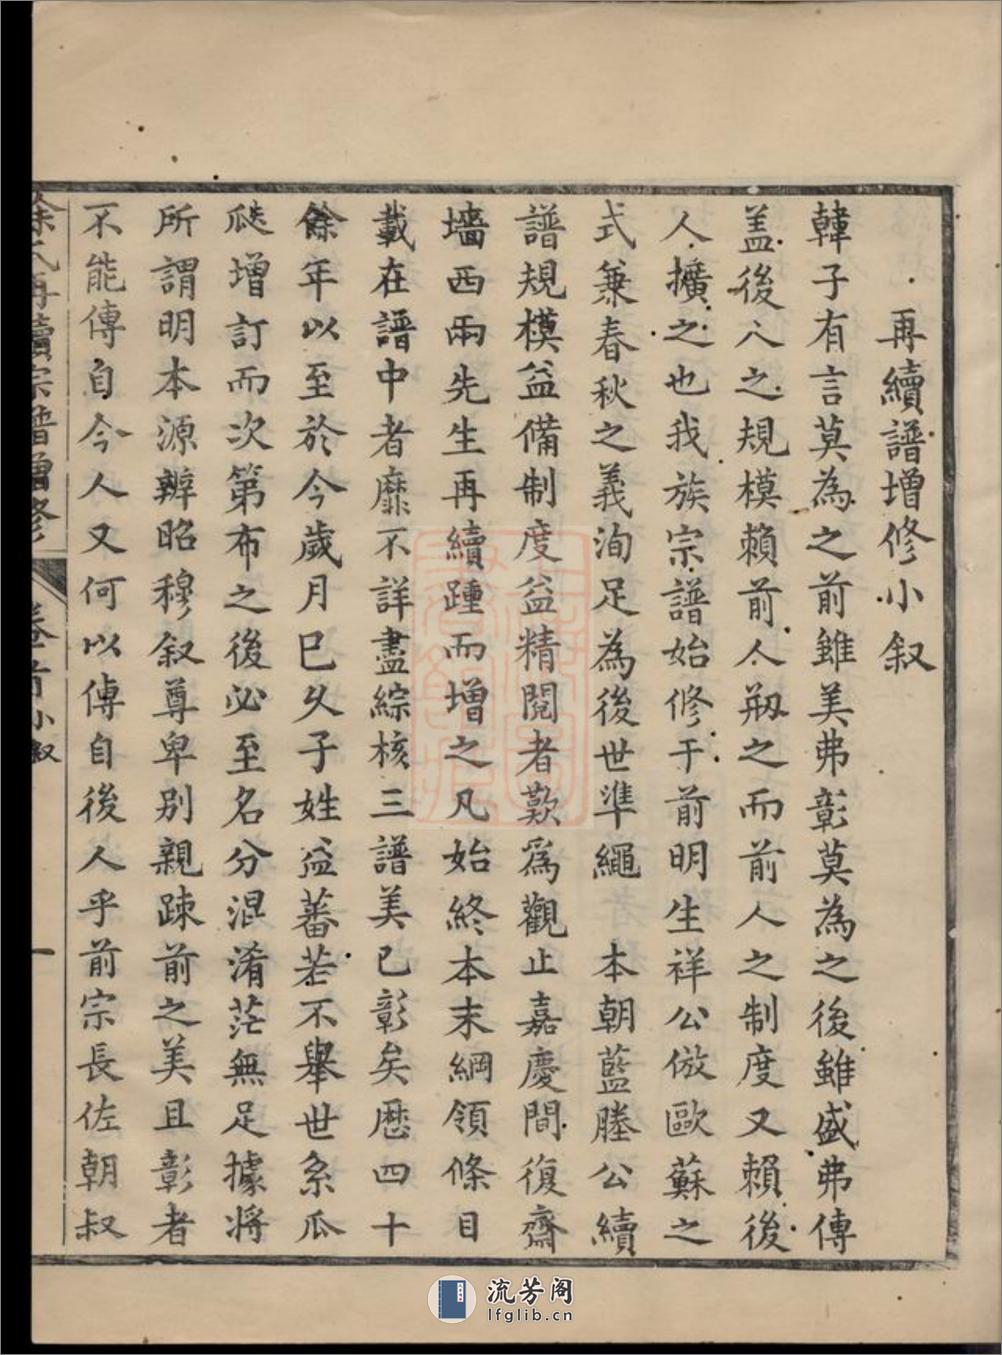 再續譜增修小叙
韓子有言莫為之前雖美弗彰莫為之後雖盛弗傳
盖後人之規模賴前人刱之而前人之制度又賴後
人擴之也我族宗譜始修于前明生祥公倣歐蘇之
式兼春秋之義洵足為後世準繩 本朝藍塍公續
譜規模益備制度益精閱者歎爲觀止嘉慶間復齋
墻西兩先生再續踵而增之凡始終本末綱領條目
載在譜中者靡不詳盡綜核三譜美已彰矣歴四十
餘年以至於今歲月已久子姓益蕃若不舉世系瓜
瓞增訂而次第布之後必至名分混淆茫無足據將
所謂明本源辨昭穆叙尊卑別親踈前之美且彰者
不能傳自今人又何以傳自後人乎前宗長佐朝叔
余氏再續宗譜增修 卷首小叙 一
流芳阁
lfglib.cn